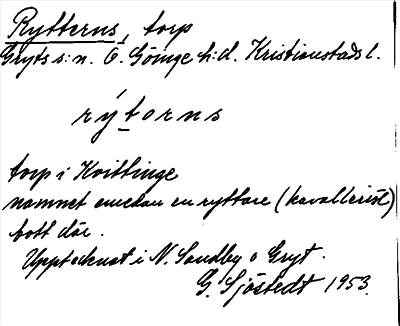 Rytterns, torp
Gryts s:n. Ö. Göinge h:d. Kristianstads l.
rýtorns
torp i Hvittinge
namnet emedan en ryttare (kavallerist)
bott där.
Upptecknat i N. Sandby o Gryt.
G. Sjöstedt 1953.